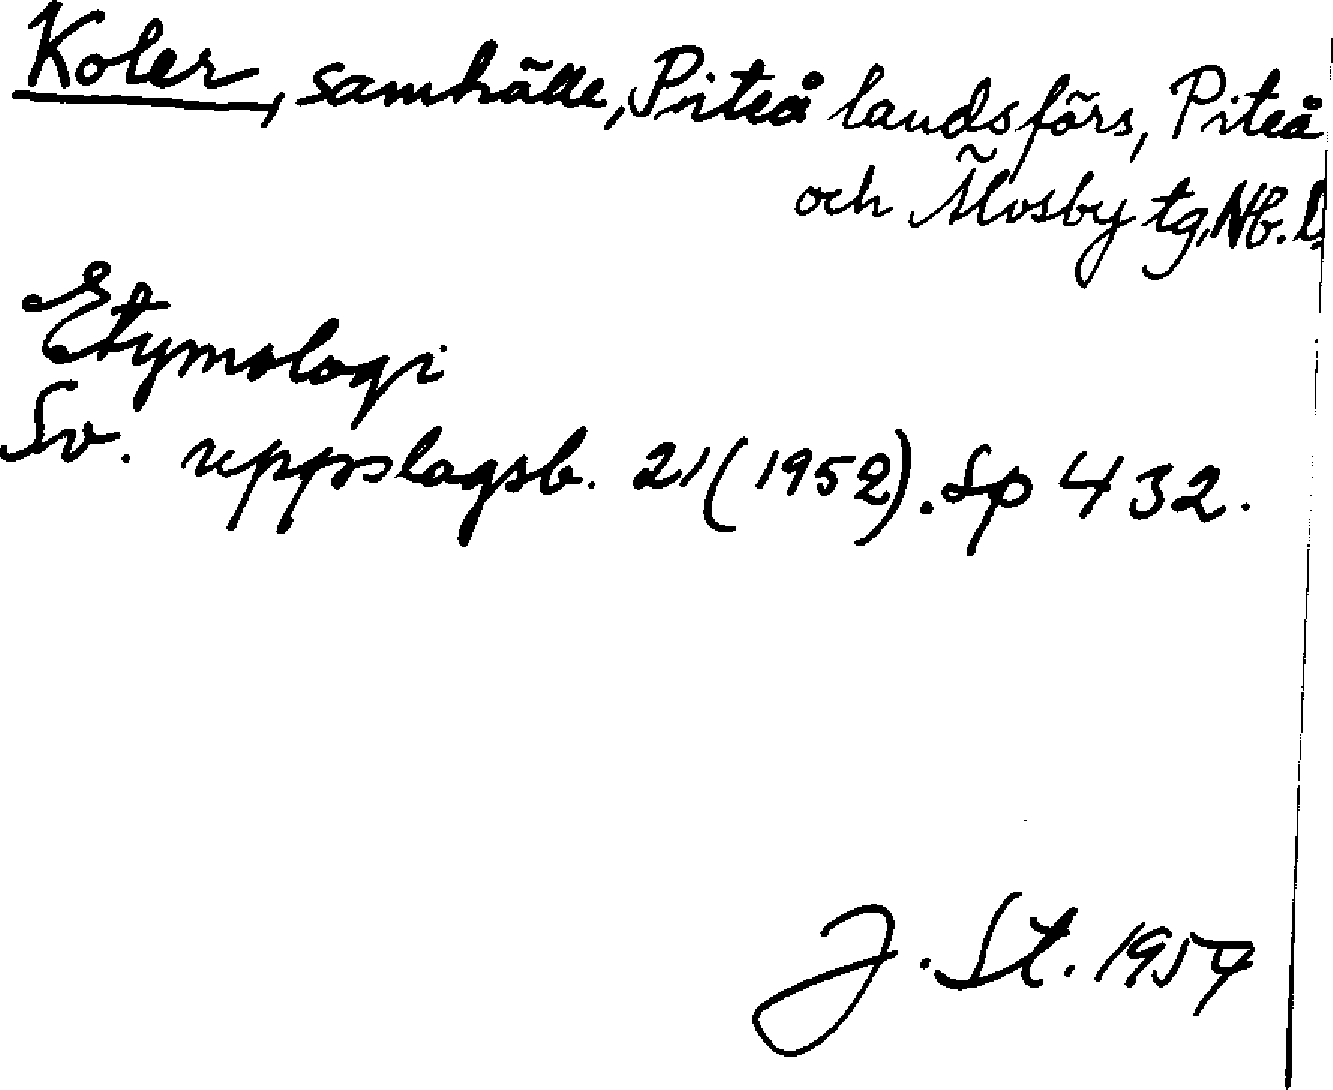 Koler, samhälle, Piteå landsförs, Piteå
och Älvsby tg, Nb. L.
Etymologi
Sv. uppslagsb. 21 (1952). Sp 432.
J. St. 1957